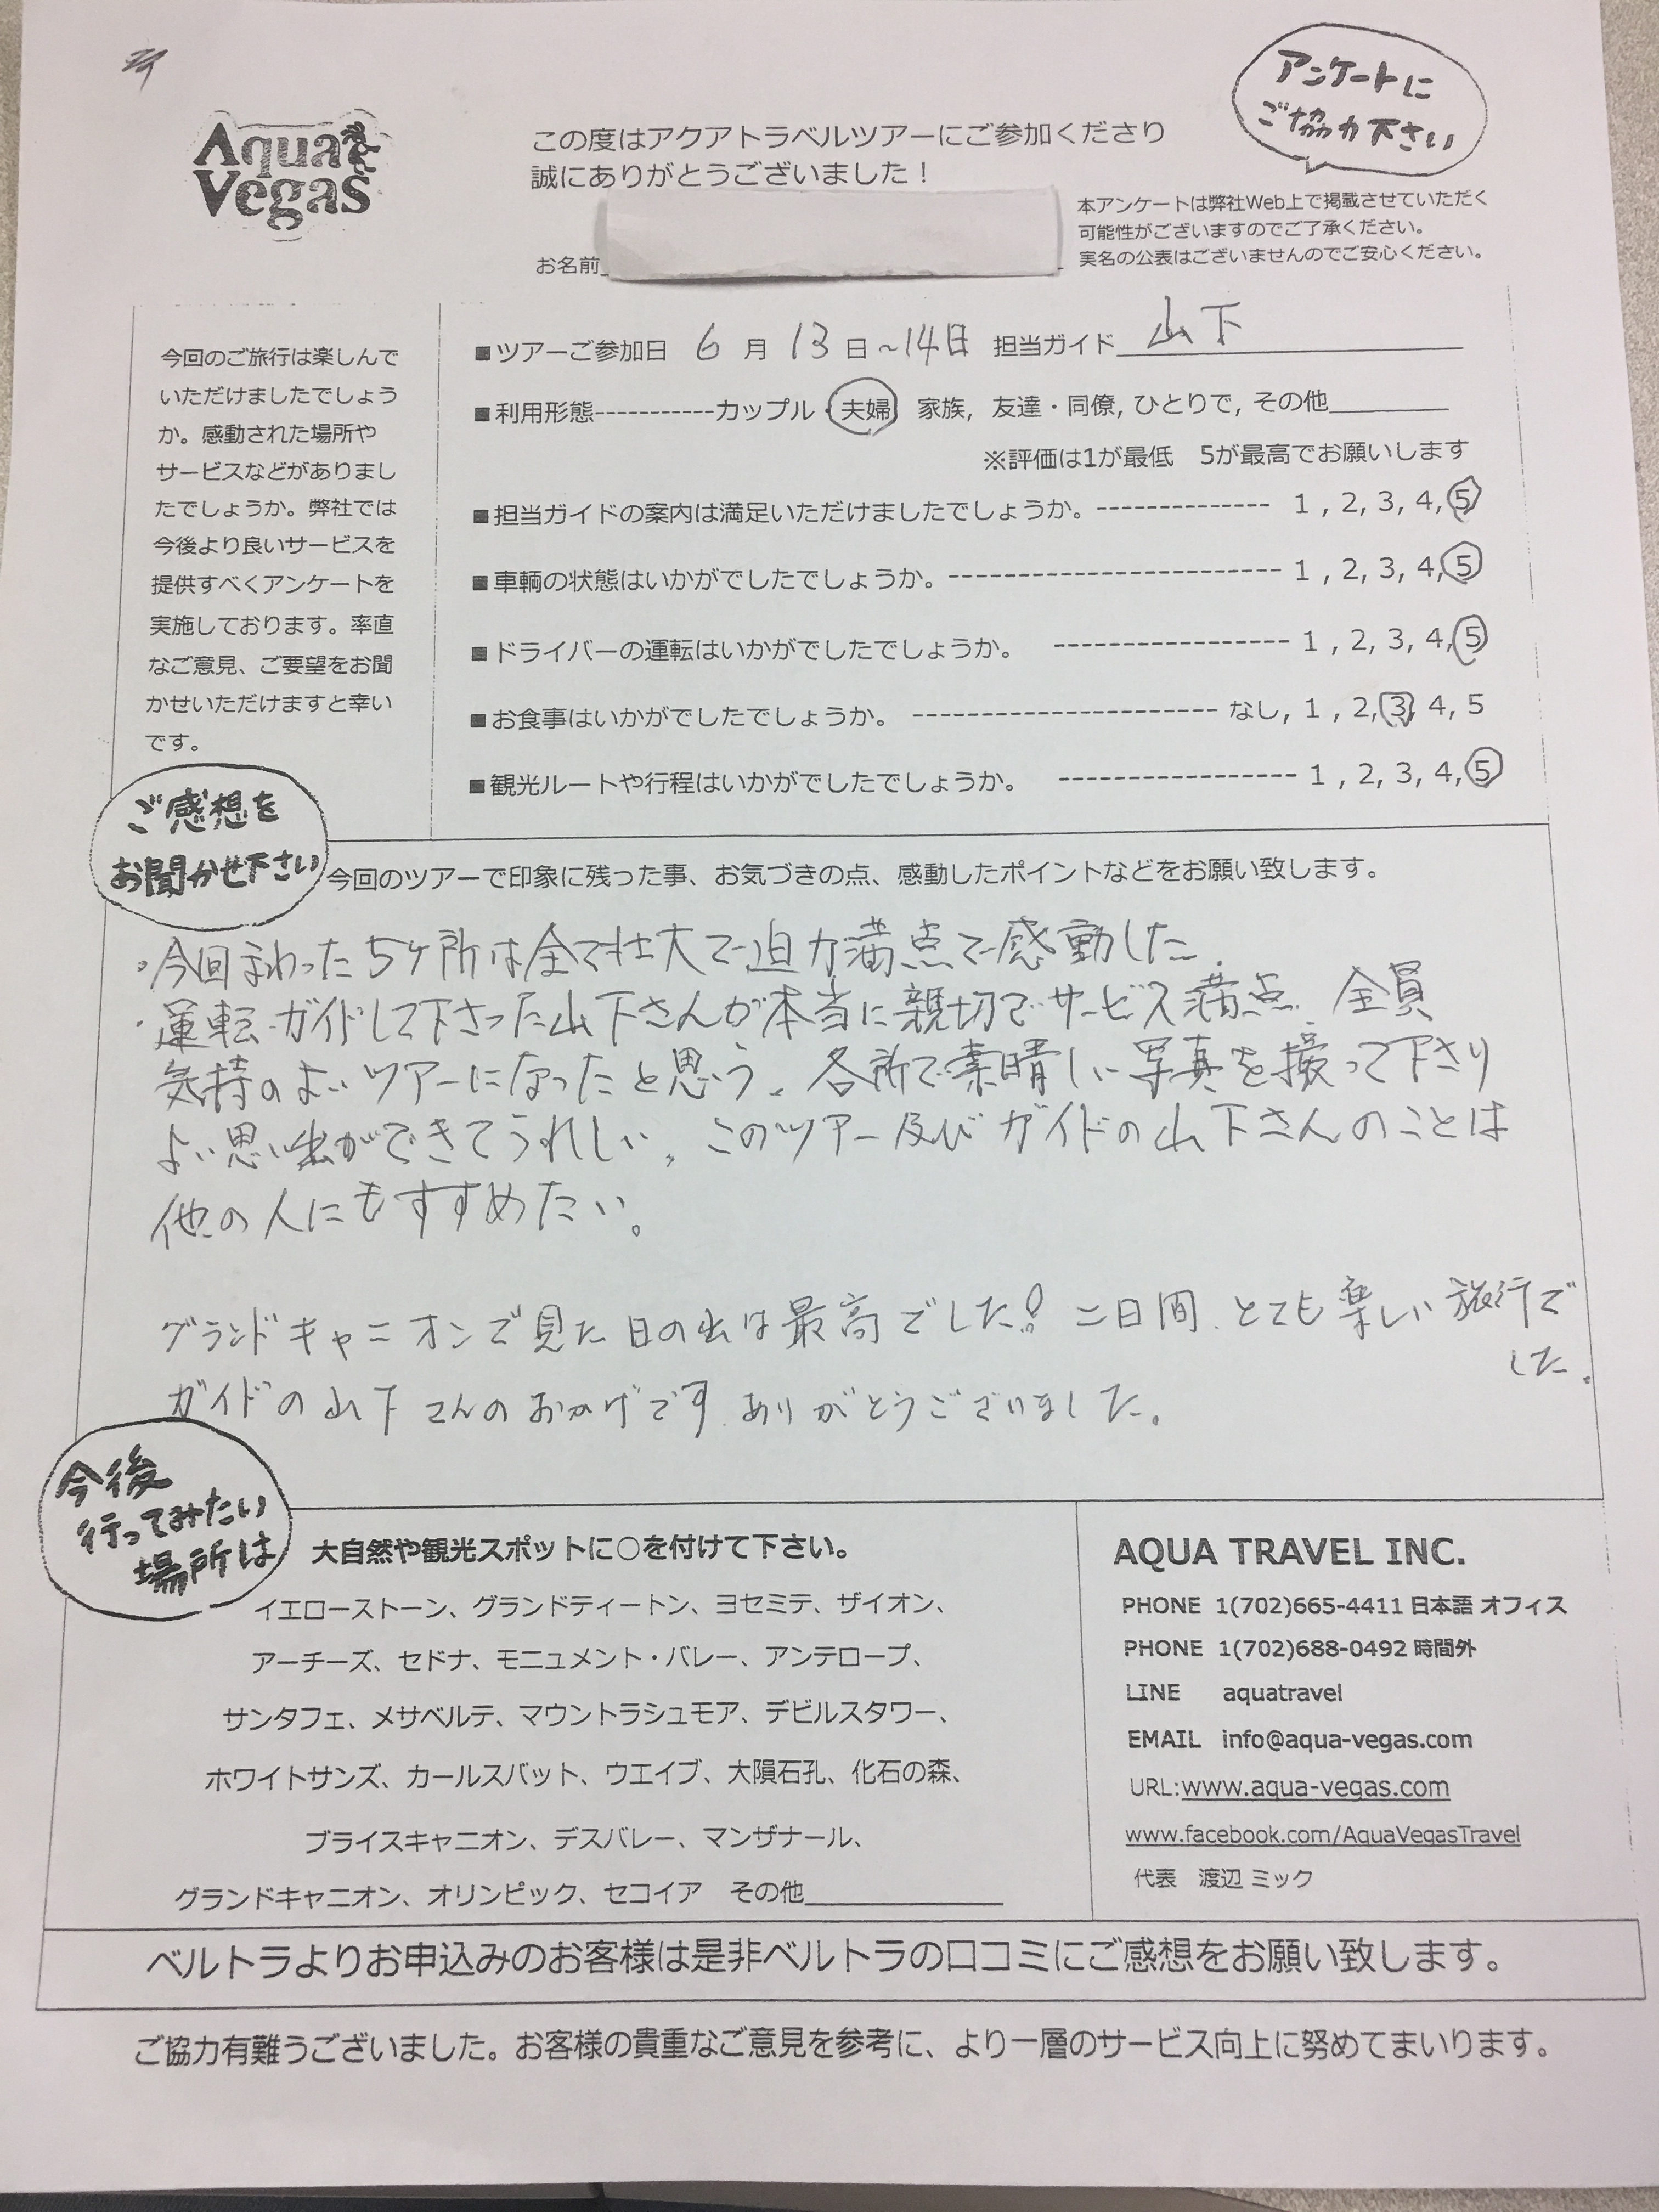 Aqua
Vegas
アンケートに
ご協力下さい
この度はアクアトラベルツアーにご参加くださり
誠にありがとうございました！
本アンケートは弊社Web上で掲載させていただく
可能性がございますのでご了承ください。
実名の公表はございませんのでご安心ください。
お名前
今回のご旅行は楽しんで
いただけましたでしょう
か。感動された場所や
サービスなどがありまし
たでしょうか。弊社では
今後より良いサービスを
提供すべくアンケートを
実施しております。率直
なご意見、ご要望をお聞
かせいただけますと幸い
です。
■ツアーご参加日 6 月 13 日 ~14日 担当ガイド 山下
■利用形態-----------カップル・夫婦 家族, 友達・同僚, ひとりで, その他
※評価は1が最低 5が最高でお願いします
■担当ガイドの案内は満足いただけましたでしょうか。------------- 1 , 2, 3, 4, 5
■車輌の状態はいかがでしたでしょうか。------------------------- 1 , 2, 3, 4, 5
■ドライバーの運転はいかがでしたでしょうか。 ----------------- 1 , 2, 3, 4, 5
■お食事はいかがでしたでしょうか。 ---------------------- なし, 1 , 2, 3, 4, 5
■観光ルートや行程はいかがでしたでしょうか。 ----------------- 1 , 2, 3, 4, 5
ご感想を
お聞かせ下さい
今回のツアーで印象に残った事、お気づきの点、感動したポイントなどをお願い致します。
・今回まわった5ヶ所は全て壮大で迫力満点で感動した.
・運転・ガイドして下さった山下さんが本当に親切でサービス満点. 全員
気持のよいツアーになったと思う。各所で素晴しい写真を撮って下さり
よい思い出ができてうれしい。このツアー及びガイドの山下さんのことは
他の人にもすすめたい。
グランドキャニオンで見た日の出は最高でした！二日間、とても楽しい旅行で
した。
ガイドの山下さんのおかげです. ありがとうございました。
今後
行ってみたい
場所は
大自然や観光スポットに○を付けて下さい。
イエローストーン、グランドティートン、ヨセミテ、ザイオン、
アーチーズ、セドナ、モニュメント・バレー、アンテロープ、
サンタフェ、メサベルテ、マウントラシュモア、デビルスタワー、
ホワイトサンズ、カールスバット、ウエイブ、大隕石孔、化石の森、
ブライスキャニオン、デスバレー、マンザナール、
グランドキャニオン、オリンピック、セコイア その他
AQUA TRAVEL INC.
PHONE 1(702)665-4411 日本語 オフィス
PHONE 1(702)688-0492 時間外
LINE aquatravel
EMAIL info@aqua-vegas.com
URL:www.aqua-vegas.com
www.facebook.com/AquaVegasTravel
代表 渡辺 ミック
ベルトラよりお申込みのお客様は是非ベルトラの口コミにご感想をお願い致します。
ご協力有難うございました。お客様の貴重なご意見を参考に、より一層のサービス向上に努めてまいります。